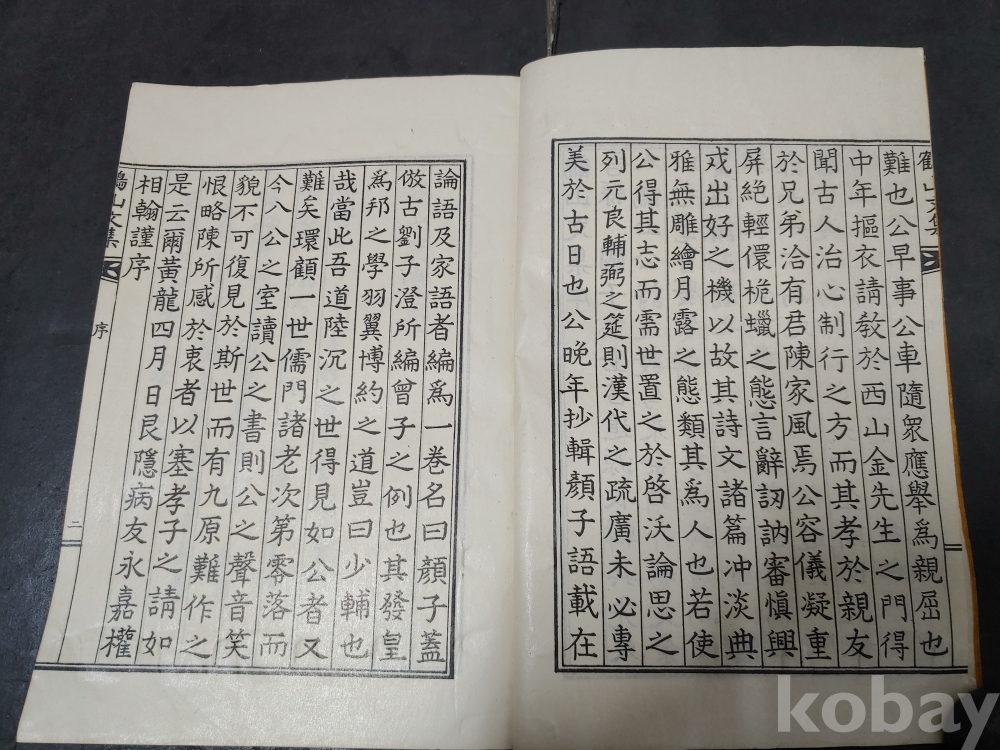 難也公早事公車隨衆應擧爲親屈也
中年摳衣請敎於西山金先生之門得
聞古人治心制行之方而其孝於親友
於兄弟洽有君陳家風焉公容儀凝重
屛絶輕儇梔蠟之態言辭訒訥審愼興
戎出好之機以故其詩文諸篇冲淡典
雅無雕繪月露之態類其爲人也若使
公得其志而需世置之於啓沃論思之
列元良輔弼之筵則漢代之疏廣未必專
美於古日也公晩年抄輯顔子語載在
論語及家語者編爲一卷名曰顔子蓋
倣古劉子澄所編曾子之例也其發皇
爲邦之學羽翼博約之道豈曰少輔也
哉當此吾道陸沉之世得見如公者又
難矣環顧一世儒門諸老次第零落而
今入公之室讀公之書則公之聲音笑
貌不可復見於斯世而有九原難作之
恨略陳所感於衷者以塞孝子之請如
是云爾黃龍四月日艮隱病友永嘉權
相翰謹序
鶴山文集
序
二
kobay